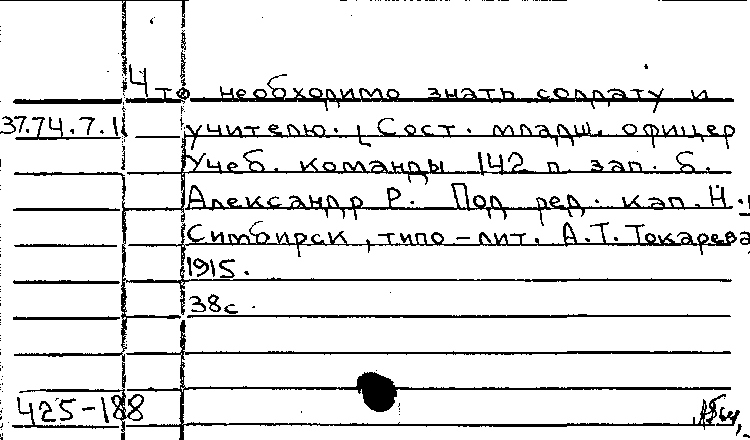 Что необходимо знать солдату и
37.74.7.1 учителю. [Сост. младш. офицер
Учеб. команды 142 п. зап. б.
Александр Р. Под ред. кап. Н.
Симбирск, типо-лит. А.Т. Токарева
1915.
38с.
425-188